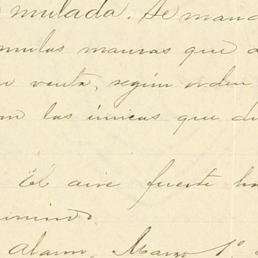 mulada. Se mand
mulas mansas que d
venta, según orden
las únicas que d
El aire fuerte ha
Alamo, Marzo 1º.